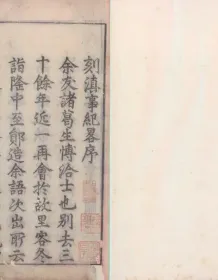 刻滇事紀畧序
余友諸葛生博洽士也別去三
十餘年近一再會於故里客冬
詣隆中至鄖造余語次出所云